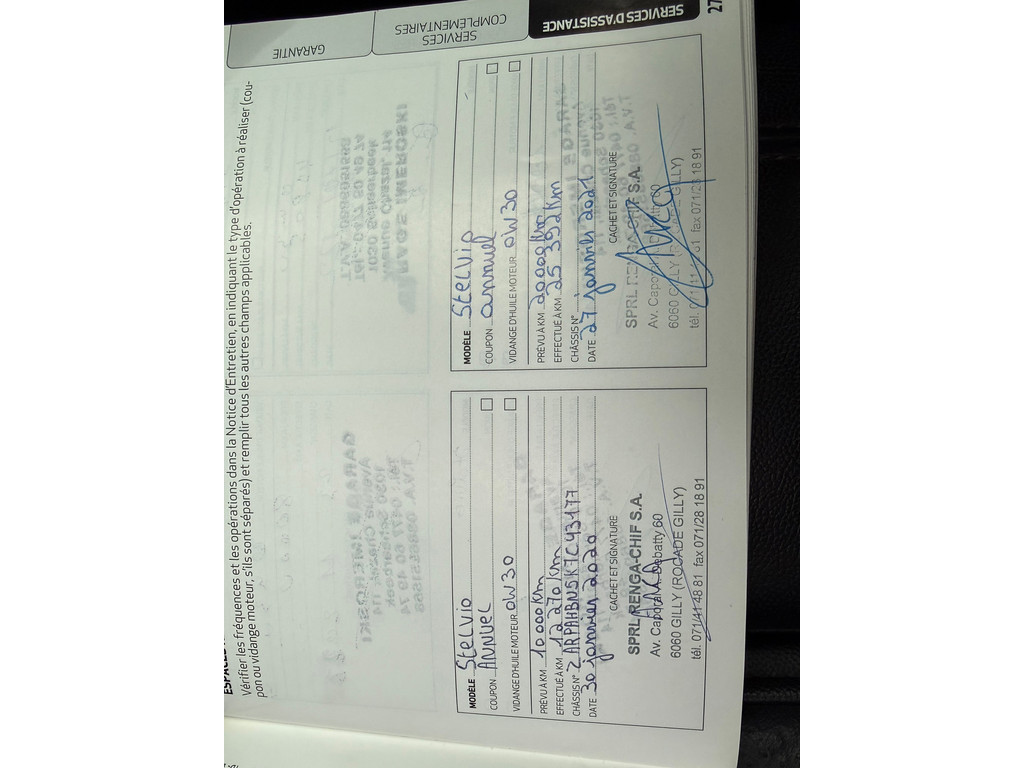 Vérifier les fréquences et les opérations dans la Notice d'Entretien, en indiquant le type d'opération à réaliser (cou-
pon ou vidange moteur, s'ils sont séparés) et remplir tous les autres champs applicables.
MODÈLE Stelvio
COUPON ANNUEL
VIDANGE D'HUILE MOTEUR 0W30
PRÉVU À KM 10000 km
EFFECTUÉ À KM 12270 km
CHÂSSIS N° ZARPAHBN5K7C43177
DATE 30 janvier 2020
CACHET ET SIGNATURE
SPRL RENGA-CHIF S.A.
Av. Caporal Debatty 60
6060 GILLY (ROCADE GILLY)
tél. 071/41 48 81 fax 071/28 18 91
MODÈLE Stelvio
COUPON annuel
VIDANGE D'HUILE MOTEUR 0W30
PRÉVU À KM 20000 km
EFFECTUÉ À KM 25 392 km
CHÂSSIS N°
DATE 27 janvier 2021
CACHET ET SIGNATURE
SPRL RENGA-CHIF S.A.
Av. Caporal Debatty 60
6060 GILLY (ROCADE GILLY)
tél. 071/ 81 fax 071/28 18 91
GARANTIE
SERVICES
COMPLÉMENTAIRES
SERVICES D'ASSISTANCE
27